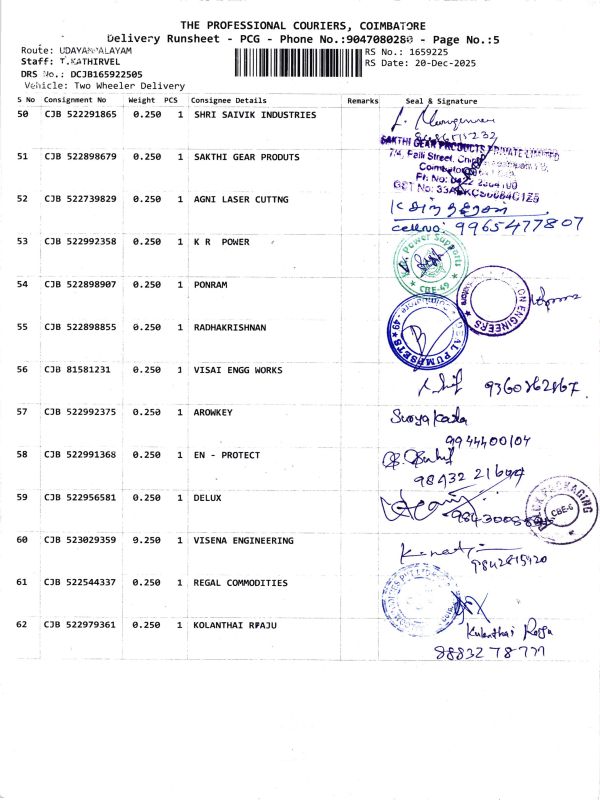 THE PROFESSIONAL COURIERS, COIMBATORE
Delivery Runsheet - PCG - Phone No.:9047080280 - Page No.:5
Route: UDAYAMPALAYAM
RS No.: 1659225
Staff: T.KATHIRVEL
RS Date: 20-Dec-2025
DRS No.: DCJB165922505
Vehicle: Two Wheeler Delivery
S No Consignment No Weight PCS Consignee Details Remarks Seal & Signature
50 CJB 522291865 0.250 1 SHRI SAIVIK INDUSTRIES
SAKTHI GEAR PRODUCTS PRIVATE LIMITED
51 CJB 522898679 0.250 1 SAKTHI GEAR PRODUTS
7/4, Palli Street,
52 CJB 522739829 0.250 1 AGNI LASER CUTTNG
cell no: 9965477807
53 CJB 522992358 0.250 1 K R POWER
Power Support
CBE-49
54 CJB 522898907 0.250 1 PONRAM
ENGINEERS
55 CJB 522898855 0.250 1 RADHAKRISHNAN
Coimbatore - 49
PUMPSETS
56 CJB 81581231 0.250 1 VISAI ENGG WORKS
9360862867
57 CJB 522992375 0.250 1 AROWKEY
Surya Kala
9944400104
58 CJB 522991368 0.250 1 EN - PROTECT
98432
59 CJB 522956581 0.250 1 DELUX
PACKAGING
CBE-6
60 CJB 523029359 0.250 1 VISENA ENGINEERING
61 CJB 522544337 0.250 1 REGAL COMMODITIES
62 CJB 522979361 0.250 1 KOLANTHAI RAJU
Kulanthai Raju